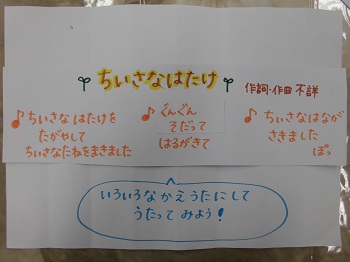 ちいさなはたけ
作詞・作曲 不詳
♪ちいさな はたけを
たがやして
ちいさなたねをまきました
♪ぐんぐん
そだって
はるがきて
♪ちいさなはなが
さきました
ぽっ
いろいろなかえうたにして
うたって みよう!